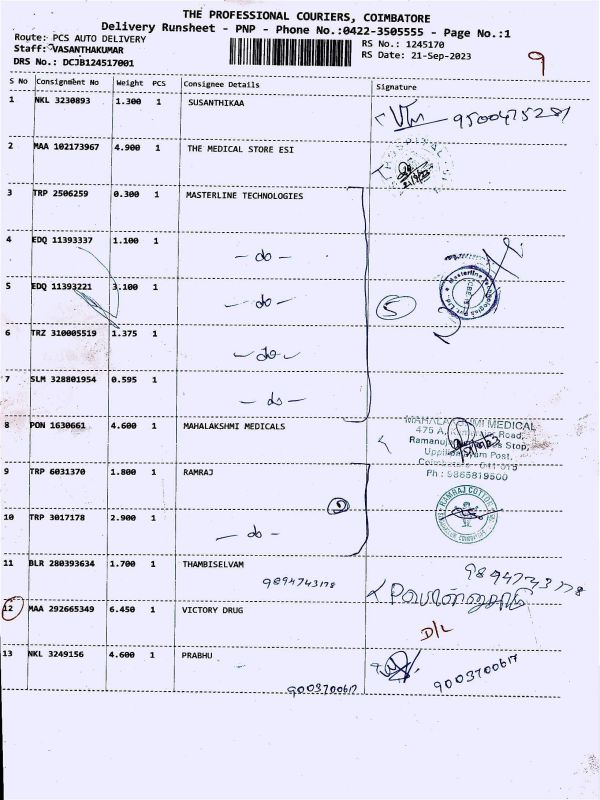 THE PROFESSIONAL COURIERS, COIMBATORE
Delivery Runsheet - PNP - Phone No.:0422-3505555 - Page No.:1
Route: PCS AUTO DELIVERY
Staff: VASANTHAKUMAR
DRS No.: DCJB124517001
RS No.: 1245170
RS Date: 21-Sep-2023
9
S No Consignment No Weight PCS Consignee Details Signature
1 NKL 3230893 1.300 1 SUSANTHIKAA 9500475281
2 MAA 102173967 4.900 1 THE MEDICAL STORE ESI
3 TRP 2506259 0.300 1 MASTERLINE TECHNOLOGIES
4 EDQ 11393337 1.100 1 - do -
5 EDQ 11393221 3.100 1 - do - 5
6 TRZ 310005519 1.375 1 - do -
7 SLM 328801954 0.595 1 - do -
8 PON 1630661 4.600 1 MAHALAKSHMI MEDICALS
MAHALAKSHMI MEDICAL
475 A, Road,
Stop,
Post,
Ph : 9865819500
9 TRP 6031370 1.800 1 RAMRAJ
RAMRAJ COTTON
10 TRP 3017178 2.900 1 - do -
11 BLR 280393634 1.700 1 THAMBISELVAM
9894743178 9894743178
12 MAA 292665349 6.450 1 VICTORY DRUG
D/L
13 NKL 3249156 4.600 1 PRABHU
9003700617 9003700617